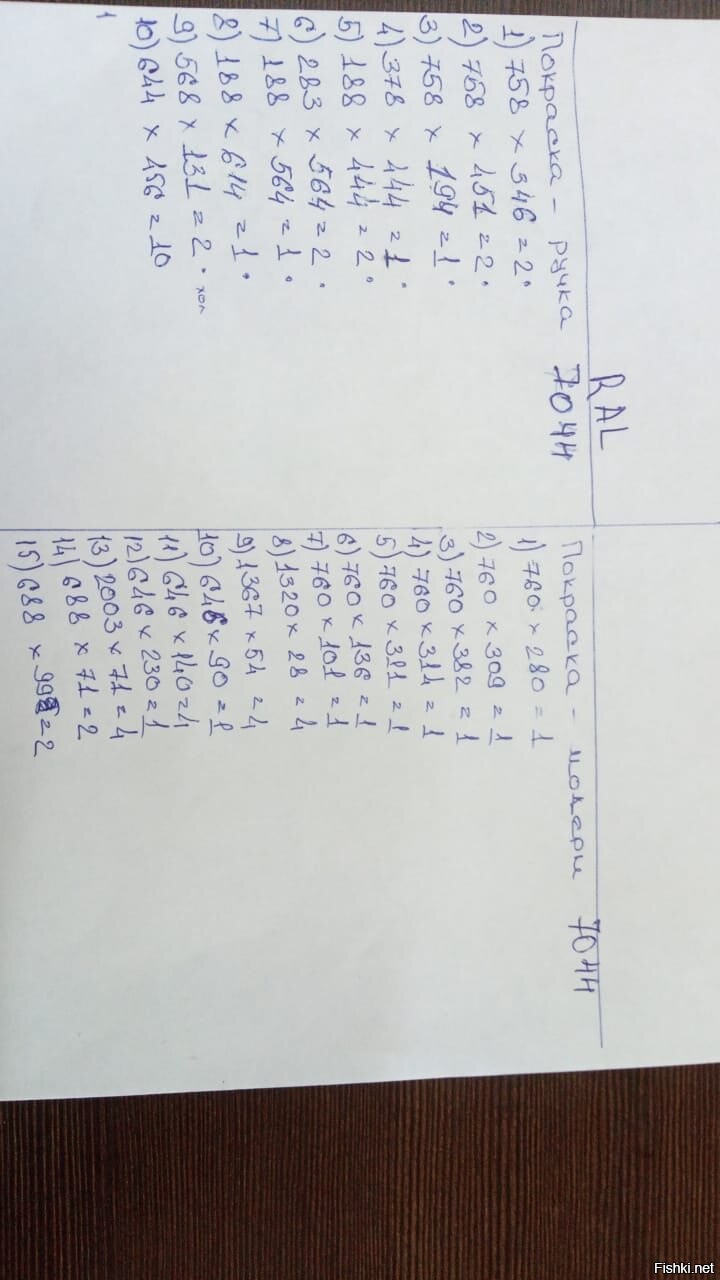 RAL
Покраска - ручка 7044
1) 758 × 346 = 2.
2) 758 × 451 = 2.
3) 758 × 194 = 1.
4) 378 × 444 = 1.
5) 188 × 444 = 2.
6) 283 × 564 = 2.
7) 188 × 564 = 1.
8) 188 × 614 = 1.
9) 568 × 131 = 2. хол
10) 644 × 456 = 10
Покраска - модерн 7044
1) 760 × 280 = 1
2) 760 × 309 = 1
3) 760 × 382 = 1
4) 760 × 314 = 1
5) 760 × 321 = 1
6) 760 × 136 = 1
7) 760 × 101 = 1
8) 1320 × 28 = 4
9) 1367 × 54 = 4
10) 646 × 90 =
11) 646 × 140 = 4
12) 646 × 230 = 1
13) 2003 × 71 = 4
14) 688 × 71 = 2
15) 688 × = 2
Fishki.net